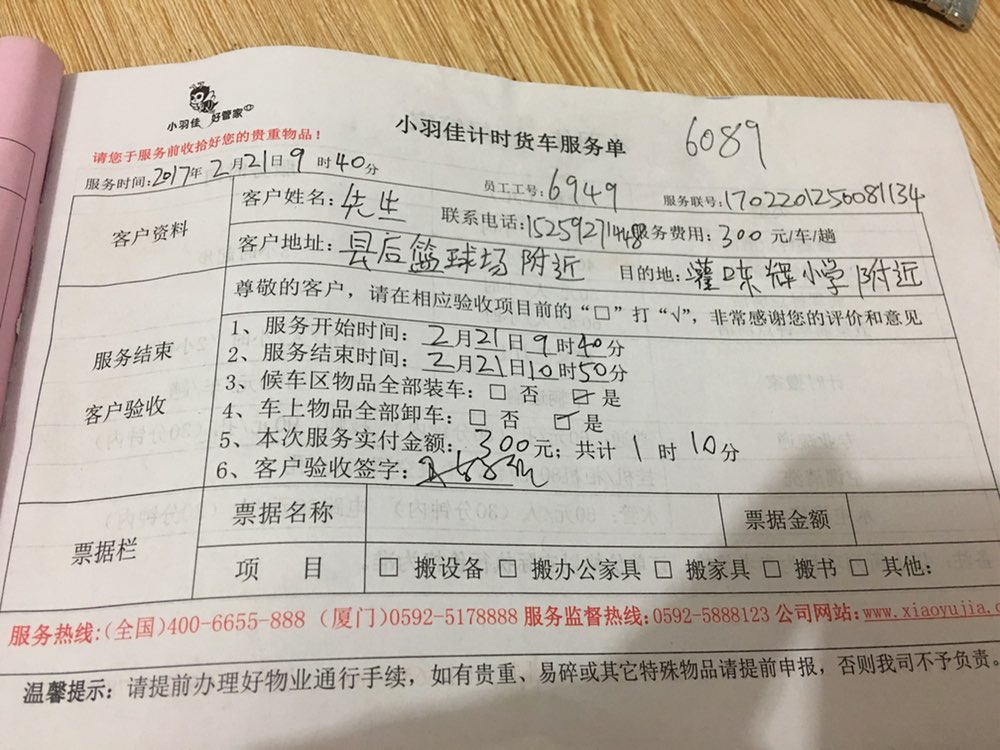 小羽佳 好管家
小羽佳计时货车服务单
6089
请您于服务前收拾好您的贵重物品！
服务时间:2017年2月21日9时40分 员工工号:6949 服务联号:1702201256081134
客户资料
客户姓名：先生 联系电话:15259271448 服务费用：300元/车/趟
客户地址：县后篮球场附近 目的地：灌口东辉小学附近
服务结束
客户验收
尊敬的客户，请在相应验收项目前的“□”打“√”，非常感谢您的评价和意见
1、服务开始时间：2月21日9时40分
2、服务结束时间：2月21日10时50分
3、候车区物品全部装车：□ 否 ☑ 是
4、车上物品全部卸车：□ 否 ☑ 是
5、本次服务实付金额：300元；共计1时10分
6、客户验收签字：
票据栏
票据名称 票据金额
项 目 □ 搬设备 □ 搬办公家具 □ 搬家具 □ 搬书 □ 其他：
服务热线:(全国)400-6655-888 (厦门)0592-5178888 服务监督热线:0592-5888123 公司网站:www.xiaoyujia.c
温馨提示：请提前办理好物业通行手续，如有贵重、易碎或其它特殊物品请提前申报，否则我司不予负责。